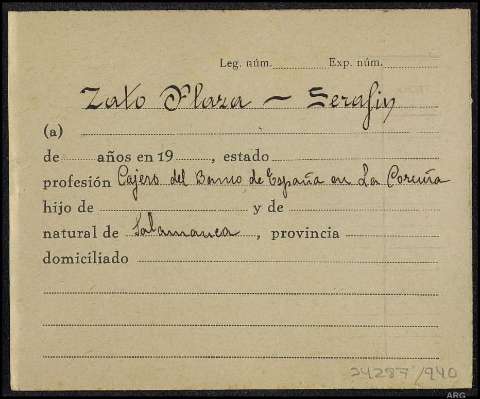 Leg. núm. Exp. núm.
Zato Plaza - Serafin
(a)
de años en 19 , estado
profesión Cajero del Banco de España en La Coruña
hijo de y de
natural de Salamanca , provincia
domiciliado
24287/940
ARG